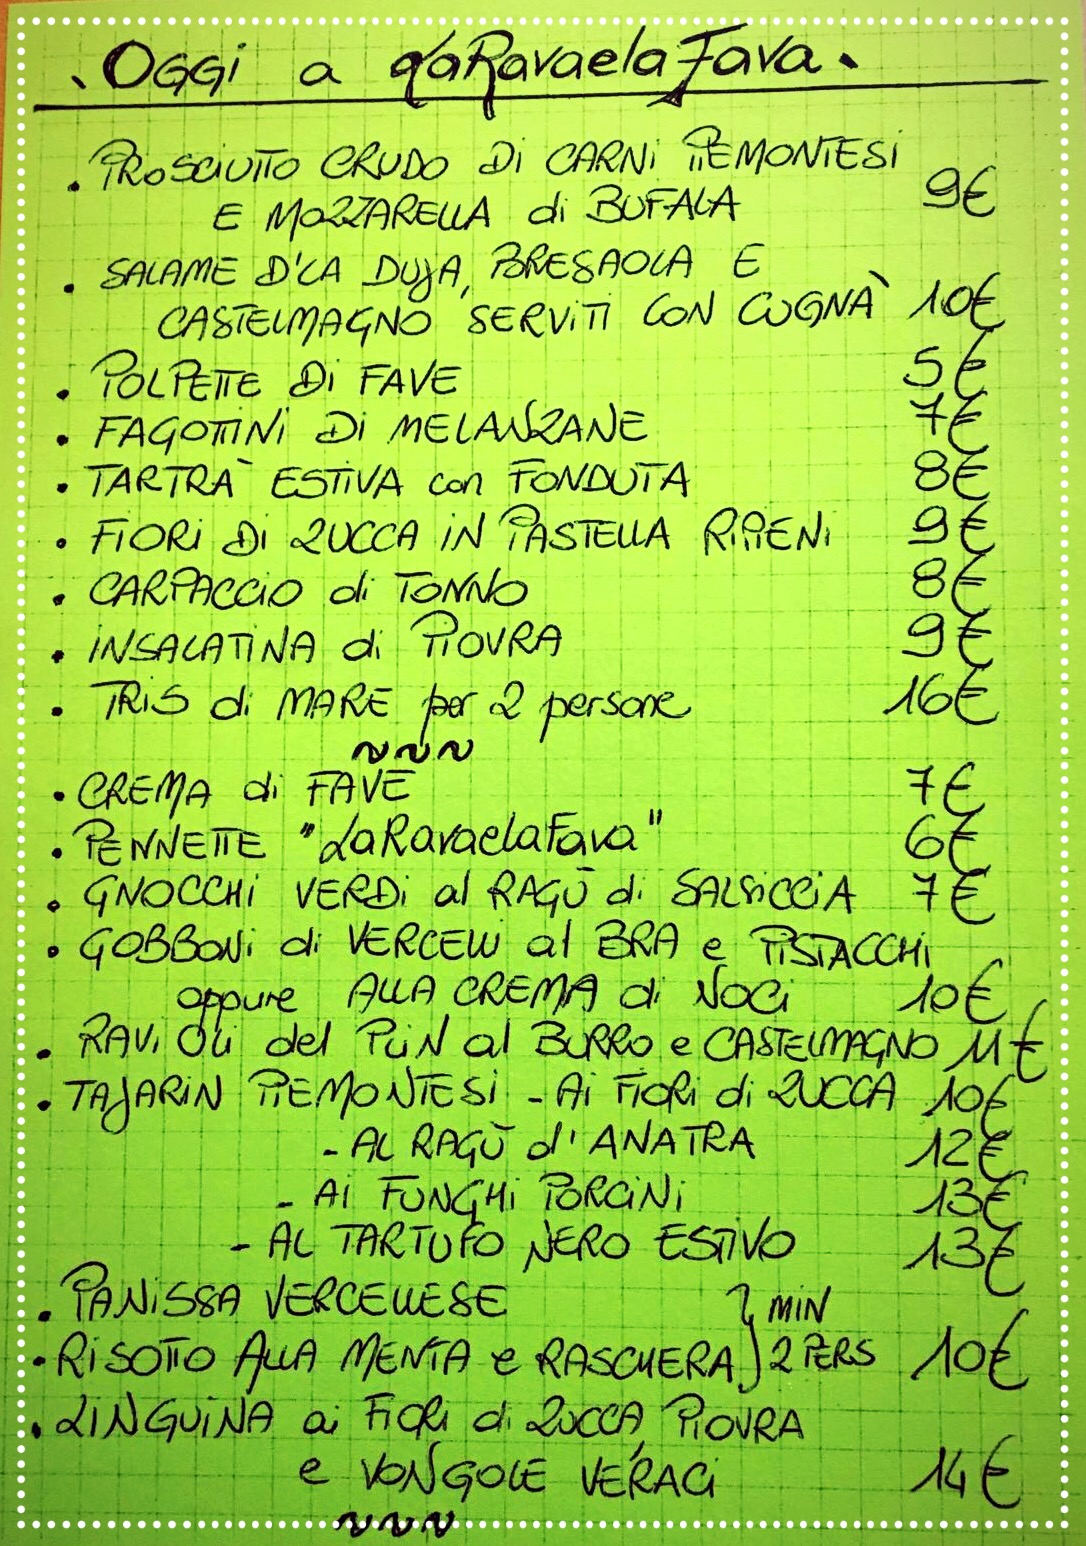 . OGGi a LaRavaelaFava .
. PROSCIUTTO CRUDO Di CARNi PiEMONTESi
E MOZZARELLA di BUFALA 9€
. SALAME D'LA DUJA, BRESAOLA E
CASTELMAGNO SERViTi CON CUGNÀ 10€
. POLPETTE Di FAVE 5€
. FAGOTTiNi Di MELANZANE 7€
. TARTRÀ ESTiVA con FONDUTA 8€
. FiORi Di ZUCCA iN PASTELLA RiPiENi 9€
. CARPACCiO di TONNO 8€
. iNSALATiNA di PiOVRA 9€
. TRiS di MARE per 2 persone 16€
~~~
. CREMA di FAVE 7€
. PENNETTE "LaRavaelaFava" 6€
. GNOCCHi VERDi al RAGÙ di SALSiCCiA 7€
. GOBBONi di VERCELLI al BRA e PiSTACCHi
oppure ALLA CREMA di NOCi 10€
. RAViOLi del PLiN al BURRO e CASTELMAGNO 11€
. TAJARiN PiEMONTESi - Ai FiORi di ZUCCA 10€
- AL RAGÙ d'ANATRA 12€
- Ai FUNGHi PORCiNi 13€
- AL TARTUFO NERO ESTiVO 13€
. PANiSSA VERCELLESE } MiN
. RiSOTTO ALLA MENTA e RASCHERA } 2 PERS 10€
. LiNGUiNA ai FiORi di ZUCCA, PiOVRA
e VONGOLE VERACi 14€
~~~